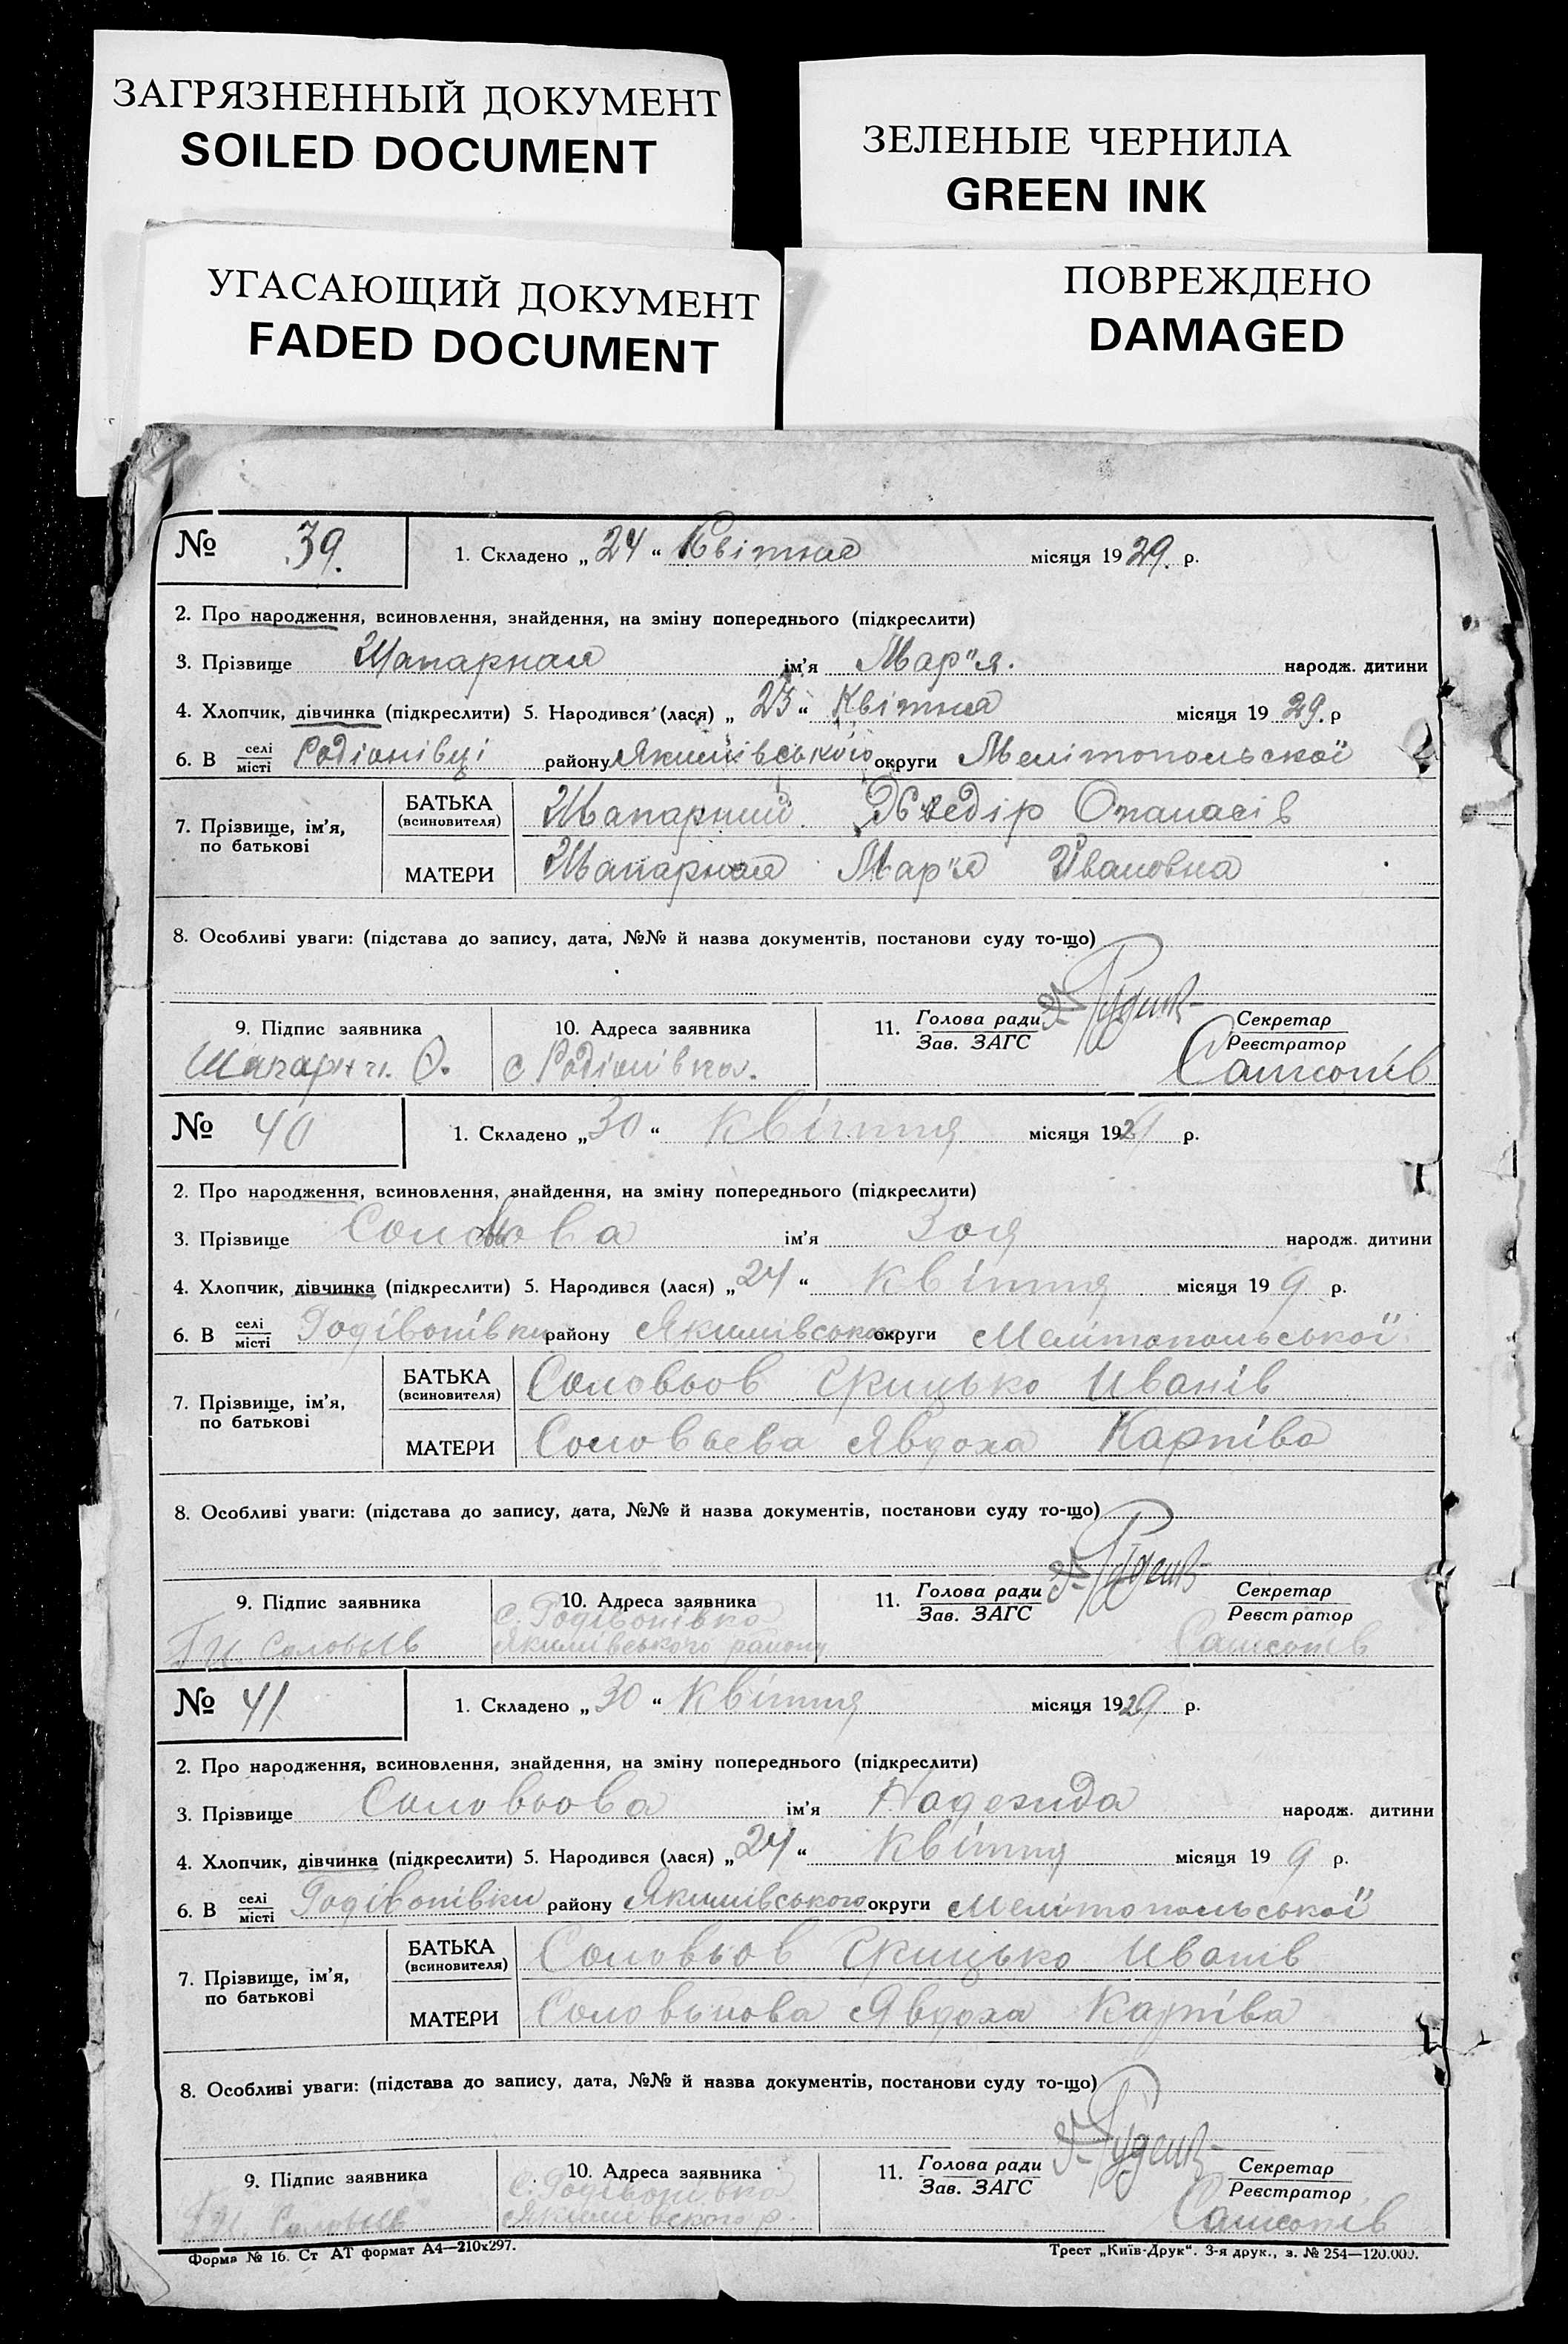 ЗАГРЯЗНЕННЫЙ ДОКУМЕНТ
SOILED DOCUMENT
ЗЕЛЕНЫЕ ЧЕРНИЛА
GREEN INK
УГАСАЮЩИЙ ДОКУМЕНТ
FADED DOCUMENT
ПОВРЕЖДЕНО
DAMAGED
№ 39. 1. Складено „24“ Квітня місяця 1929. р.
2. Про народження, всиновлення, знайдення, на зміну попереднього (підкреслити)
3. Прізвище Шапарная ім'я Мар"я. народж. дитини
4. Хлопчик, дівчинка (підкреслити) 5. Народився (лася) „23“ Квітня місяця 1929. р
6. В селі місті Родіонівці району Якимівського округи Мелітопольскої
7. Прізвище, ім'я, по батькові
БАТЬКА (всиновителя) Шапарний Хведір Опанасів
МАТЕРИ Шапарная Мар'я Івановна
8. Особливі уваги: (підстава до запису, дата, №№ й назва документів, постанови суду то-що)
9. Підпис заявника 10. Адреса заявника 11. Голова ради Зав. ЗАГС Секретар Реєстратор
Шапарн О. с Родіонівка. Самсонів
№ 40 1. Складено „30“ Квітня місяця 1929 р.
2. Про народження, всиновлення, знайдення, на зміну попереднього (підкреслити)
3. Прізвище ім'я Зоя народж. дитини
4. Хлопчик, дівчинка (підкреслити) 5. Народився (лася) „24“ Квітня місяця 199 р.
6. В селі місті Родівонівки району Якимівського округи Мелітопольської
7. Прізвище, ім'я, по батькові
БАТЬКА (всиновителя) Соловьов Грицько Иванів
МАТЕРИ Соловьева Явдоха Карпіва
8. Особливі уваги: (підстава до запису, дата, №№ й назва документів, постанови суду то-що)
9. Підпис заявника 10. Адреса заявника 11. Голова ради Зав. ЗАГС Секретар Реєстратор
с. Родівонівка
Соловьів Якимівського району Самсонів
№ 41 1. Складено „30“ Квітня місяця 1929 р.
2. Про народження, всиновлення, знайдення, на зміну попереднього (підкреслити)
3. Прізвище Соловьова ім'я Надежда народж. дитини
4. Хлопчик, дівчинка (підкреслити) 5. Народився (лася) „24“ Квітня місяця 199 р.
6. В селі місті Родівонівки району Якимівського округи Мелітопольської
7. Прізвище, ім'я, по батькові
БАТЬКА (всиновителя) Соловьов Грицько Иванів
МАТЕРИ Соловьиова Явдоха Карпіва
8. Особливі уваги: (підстава до запису, дата, №№ й назва документів, постанови суду то-що)
9. Підпис заявника 10. Адреса заявника 11. Голова ради Зав. ЗАГС Секретар Реєстратор
с. Родівонівка
Соловьів р. Самсонів
Форма № 16. Ст АТ формат А4—210х297.
Трест „Київ-Друк“. 3-я друк., з. № 254—120.000.